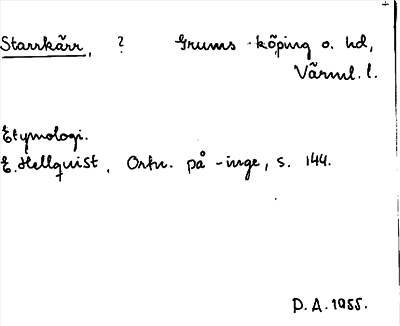 Starrkärr, ? Grums köping o. hd,
Värml. l.
Etymologi.
E. Hellquist, Ortn. på -inge, s. 144.
D.A. 1955.